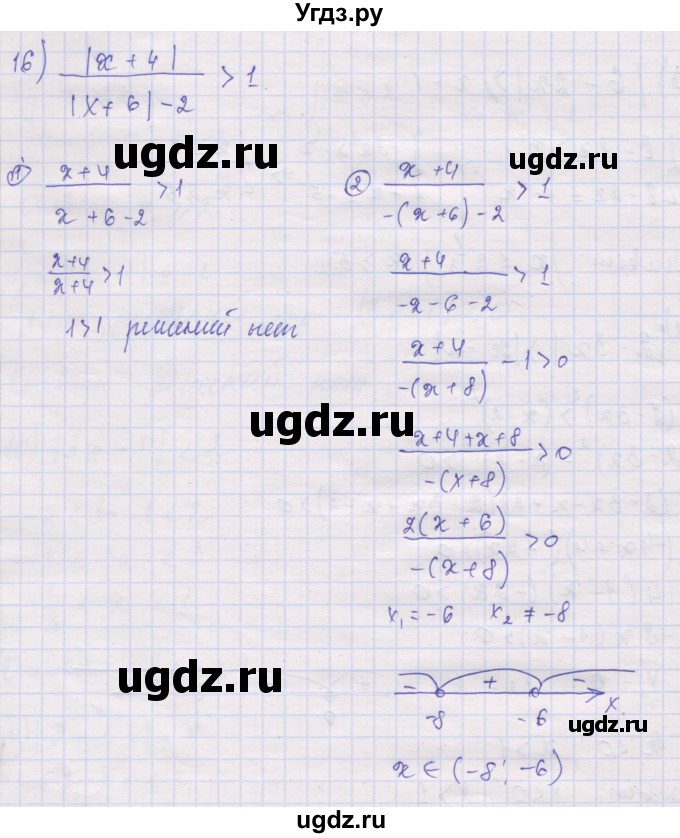 Угдз.ру
16) |x + 4| / (|x + 6| - 2) > 1
ugdz.ru
ugdz.ru
① (x+4) / (x + 6 - 2) > 1
(x+4) / (x+4) > 1
1>1 решений нет
② (x + 4) / (-(x+6) - 2) > 1
(x+4) / (-x - 6 - 2) > 1
(x+4) / (-(x+8)) - 1 > 0
ugdz.ru
ugdz.ru
(x+4+x+8) / (-(x+8)) > 0
2(x + 6) / (-(x+8)) > 0
x₁ = -6 x₂ ≠ -8
ugdz.ru
ugdz.ru
- + - x
-8 -6
x ∈ (-8; -6)